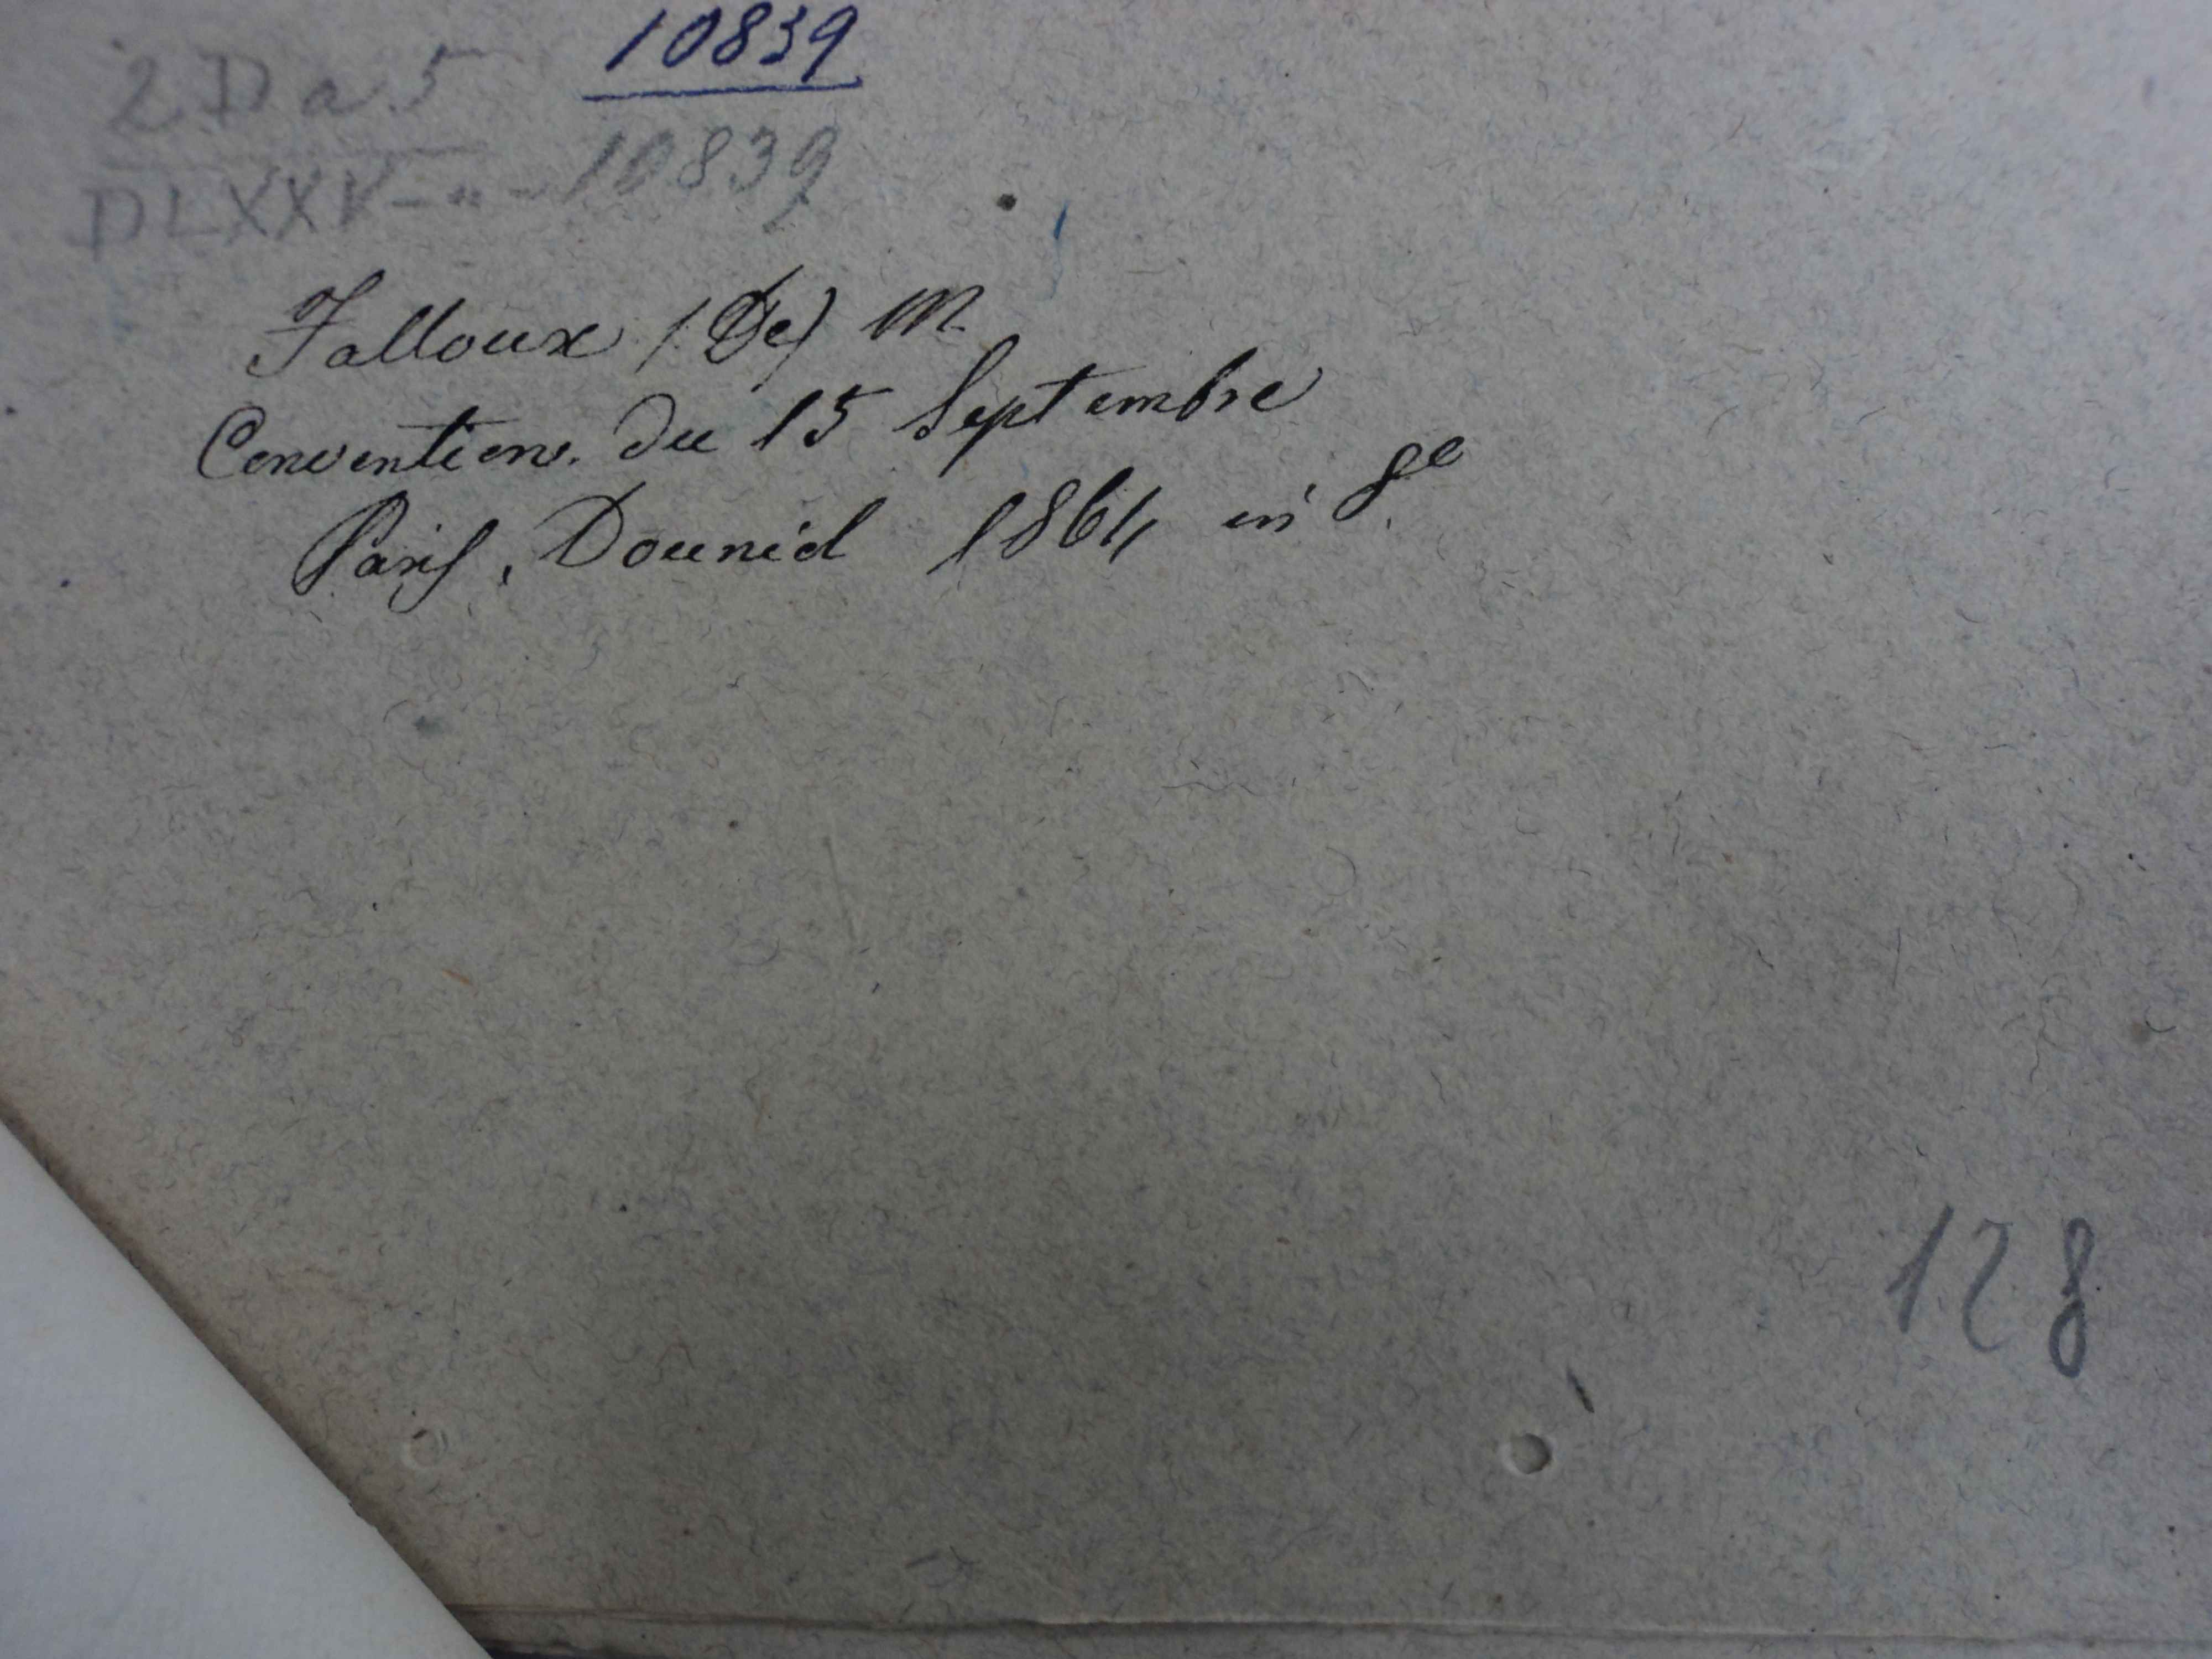 10839
2 D a 5
DLXXV - " - 10839
Falloux (De) M
Convention du 15 Septembre
Paris, Douniol 1864 in 8o
128